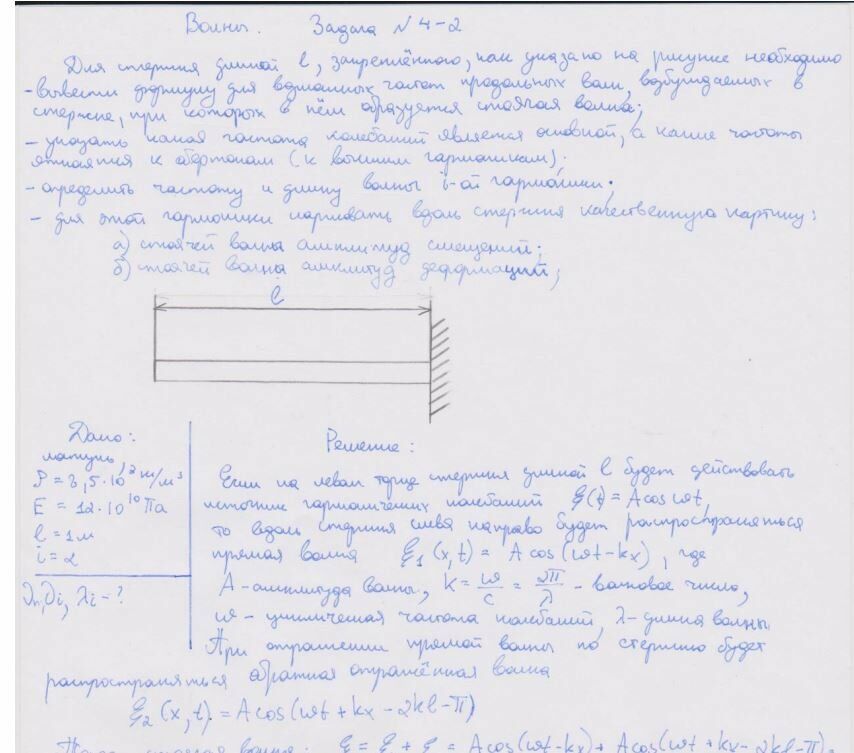 Волны. Задача № 4-2
Для стержня длиной l, закреплённого, как указано на рисунке необходимо
- вывести формулу для возможных частот продольных волн, возбуждаемых в
стержне, при которых в нём образуется стоячая волна;
- указать какая частота колебаний является основной, а какие частоты
относятся к обертонам (к высшим гармоникам);
- определить частоту и длину волны i-ой гармоники;
- для этой гармоники нарисовать вдоль стержня качественную картину:
а) стоячей волны амплитуд смещений;
б) стоячей волны амплитуд деформаций;
l
Дано:
латунь,
ρ = 8,5·10³ кг/м³
E = 12·10¹⁰ Па
l = 1м
i = 2
νn, νi, λi - ?
Решение:
Если на левом торце стержня длиной l будет действовать
источник гармонических колебаний ξ(t) = A cos ωt,
то вдоль стержня слева направо будет распространяться
прямая волна ξ₁(x,t) = A cos(ωt-kx), где
A - амплитуда волны, k = ω/c = 2π/λ - волновое число,
ω - циклическая частота колебаний, λ - длина волны.
При отражении прямой волны по стержню будет
распространяться обратная отражённая волна
ξ₂(x,t) = A cos(ωt + kx - 2kl - π)
стоячая волна: ξ = ξ + ξ = A cos(ωt-kx) + A cos(ωt + kx - 2kl - π) =